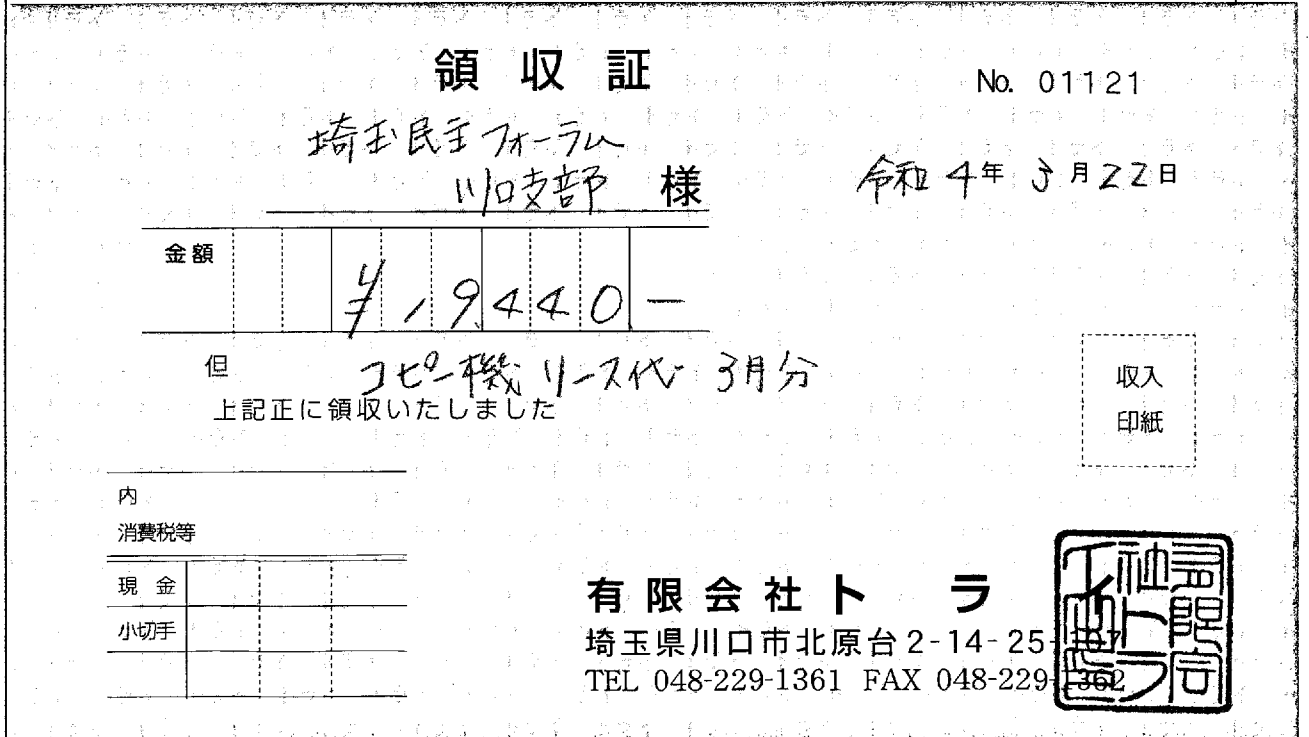 領収証
No. 01121
埼玉民主フォーラム
川口支部 様
令和 4年 3月22日
金額
¥19,440-
但 コピー機 リース代 3月分
上記正に領収いたしました
収入
印紙
内
消費税等
現金
小切手
有限会社トライ
埼玉県川口市北原台2-14-25-107
TEL 048-229-1361 FAX 048-229-1362